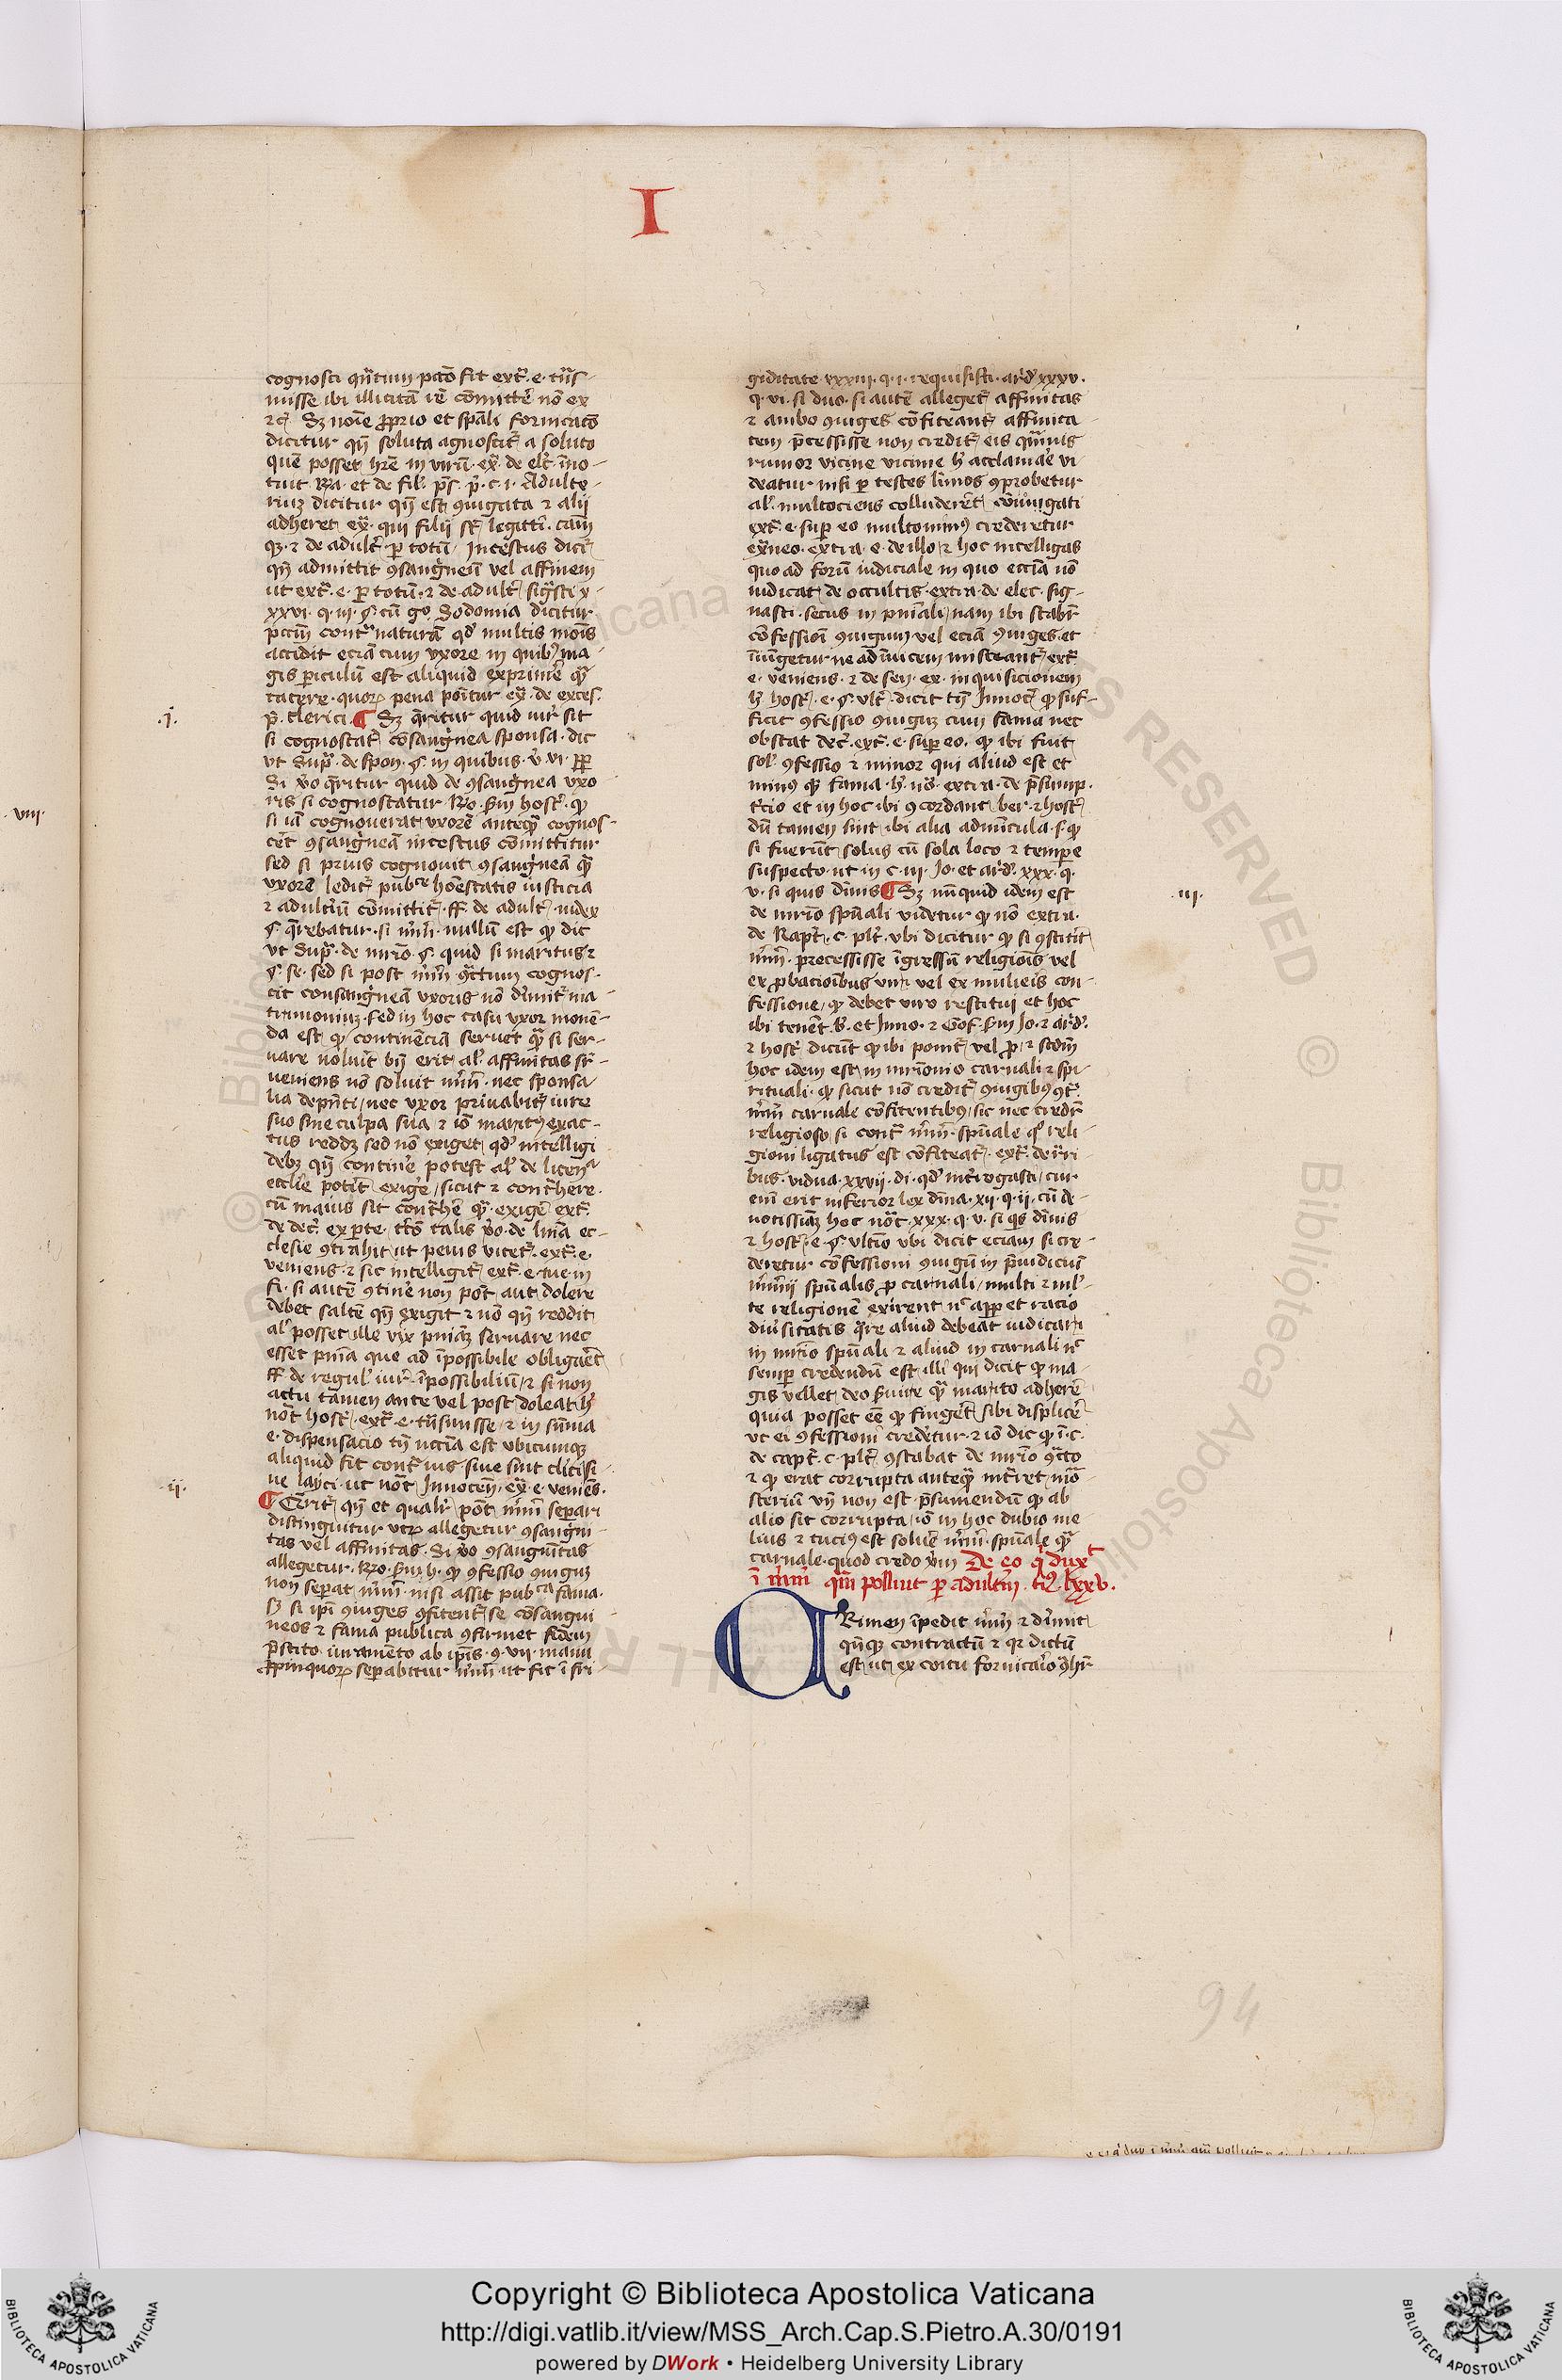 I
cognosci qn̄tum pctō fit extͣ e· tn̄s
misse ibi illicitā rē cōmittē nō ex
⁊c̄ Sꝫ noīe ꝓprio et spāli fornicatō
dicitur qn̄ soluta agnoscit᷑ a soluto
quē posset hr̄e in virū· ex̄· de elc̄· īno-
tuit· Ra· et de fil· p̄s· p̄· c· i· Adulte-
riuꝫ dicitur qn̄ est ꝯiugata ⁊ alij
adheret ex̄· qui filij st̄ legitti· cām
qꝫ· ⁊ de adult᷑· ꝑ totū· Incestus dicit᷑
qn̄ admittit ꝯsāgneū vel affinem
ut extͣ· e· ꝑ totū· ⁊ de adult᷑
xxvi· q· iii· §· cū gͦ Sodomia dicitur
pctm̄ contͣ naturā qd̕ multis mōis
accidit eciā cum vxore in quibꝰ ma-
gis ꝑiculū est aliquid exprimē qͣ
tacere· quoꝝ pena ponitur ex̄· de exces·
p̄· clerici ¶ Sꝫ q̄ritur quid iur᷑ sit
·i·
si cognoscat᷑ cōsangͥnea sponsa· dic
vt Supͣ· de spon· §· in quibus· v̓· vi·
Si v̓o q̄ritur quid de ꝯsangͥnea vxo
ris si cognoscatur· Ro· ẜm host᷑· ꝙ
·viii·
si iā cognouerat vxorē anteqͣ cognos-
cēt ꝯsangͥneā incestus cōmittitur
sed si prius cognouit ꝯsangͥneā qͣ
vxorē ledit᷑ pubᶜᵉ honestatis iusticia
⁊ adult̓iū cōmittit᷑· ff· de adult᷑· iudex
§· q̄rebatur· si mr̄m̄ nullū est ꝙ dic
vt Supͣ· de mr̄io· §· quid si maritus ⁊
§· se· sed si post mr̄m̄ ꝯtͣctum cognos-
cit consangͥneā vxoris nō dirimit᷑ ma
trimoniuꝫ· sed in hoc casu vxor monē-
da est ꝙ continēciā seruet qͣ si ser-
uare noluīt bn̄ erit al̕ affinitas sr̄-
ueniens nō soluit mr̄m̄ nec sponsa
lia de pn̄ti nec vxor priuabit᷑ iure
suo sine culpa sua ⁊ iō maritꝰ exac-
tus reddꝫ sed nō exiget qd̕ intelligi
debꝫ qn̄ continē potest al̕ de licenᵃ
eccliē potīt exigē sicut ⁊ contͣhere·
cū maius sit contͣhē qͣ exigē extͣ
de dec̄· ex ꝑte· tc̄o talis v̓o· de lnīa ec-
clesie ꝯtͣhit ut peius vitet᷑· extͣ· e·
veniens ⁊ sic intelligit᷑ extͣ· e· tue in
fi· si autē ꝯtinē non pōt aut dolere
debet saltē qn̄ exigit ⁊ nō qn̄ reddit
al̕ posset ille vix pnīaꝫ seruare nec
esset pnīa que ad īpossibile obligaret
ff· de regul̕ iur᷑· īpossibiliū ⁊ si non
actu tamen ante vel post doleat h̄
nōt host᷑· extͣ· e· tn̄smisse ⁊ in sūma
e· dispensacio tn̄ nccīa est vbicumqꝫ
aliquid fit contͣ ius siue sint clīci si-
ue layci ut nōt Innocen̄· ex̄· e· veniens·
·ii·
¶ Queritͬ qn̄ et qualit᷑ pōt mr̄m̄ separi
distinguitur vtꝝ allegetur ꝯsangͥni-
tas vel affinitas· Si v̓o ꝯsanguītas
allegetur· Ro· ẜm h· ꝙ ꝯfessio ꝯiuguꝫ
non seperat mr̄m̄ nisi assit pubᶜᵃ fama·
Sꝫ si ipī ꝯiuges ꝯfitent᷑ se cōsangui
neos ⁊ fama publica ꝯfirmet fidem
p̄stito iuramēto ab ip̄is· ꝯ· vii· manu
ꝓpinquoꝝ seperabitur mr̄m̄ ut fit ī fri-
giditate xxxiii· q· i· requisisti· ard̕· xxxv·
q· vi· si duo· si autē alleget᷑ affinitas
⁊ ambo ꝯiuges cōfiteant᷑ affinita
tem p̄cessisse non credit᷑ eis qͣmuis
rumor vicine vicinie h̄ acclamāē vi
deatur nisi ꝑ testes līmos ꝯprobetur
al̕ multociens colluderēt cōiūgati
extͣ· e· suꝑ eo multominꝰ crederetur
extͣneo· extͣ e· de illo ⁊ hoc intelligas
quo ad forū iudiciale in quo eccīa nō
iudicat de occultis· extͣ· de elec· sig-
nasti· secus in pniāli nam ibi stabit᷑
cōfessiōi ꝯiugum vel eciā ꝯiuges et
iniūgetur ne ad inuicem misceant᷑ extͣ
e· veniens· ⁊ de sen· ex· inquisicionem
h̄ host᷑· e· §· vlt̄· dicit tn̄ Innoc̄· ꝙ suf-
ficit ꝯfessio ꝯiuguꝫ cum fama nec
obstat dec̄· extͣ· e· suꝑ eo· ꝙ ibi fuit
sol̕ ꝯfessio ⁊ minor qui aliud est et
minꝰ qͣ fama· h̄· nō· extͣ· de p̄sump·
tc̄io et in hoc ibi ꝯcordant ber· ⁊ host᷑
dū tamen sint ibi alia admīcula· s· ꝙ
si fuerīt solus cū sola loco ⁊ tempore
suspecto· ut in c· iii· Jo· et ard̕· xxx· q·
v· si quis dīnis ¶ Sꝫ nūquid idem est
·iii·
de mr̄io spūali videtur ꝙ nō extͣ·
de Rapt̄· c· plt̄· vbi dicitur ꝙ si ꝯstitīt
mr̄m̄ precessisse īgressū religionis vel
ex ꝓbacionibus viri vel ex mulieris con-
fessione ꝙ debet viro restitui et hoc
ibi tenēt B· et Inno· ⁊ Gof· ẜm Jo· ⁊ ard̕·
⁊ host᷑ dicūt ꝙ ibi ponit᷑ vel ꝓ ⁊ scdm̄
hoc idem est in mr̄ionio carnali ⁊ spi-
rituali· ꝙ sicut nō credit᷑ ꝯiugibꝰ ꝯtͣ
mr̄m̄ carnale cōfitentibꝰ sic nec credr̄
religioso si contͣ mr̄m̄· spūale qd̕ reli-
gioni ligatus est cōfiteat᷑· extͣ· de
bus· vidua· xxvii· di· qd̕ int̓rogasti cur
em̄ erit inferior lex dīna· xii· q· ii· cū de
notissīaꝫ hoc nōt· xxx· q· v· si qͥs dīnis
⁊ host᷑· e· §· vltīo vbi dicit eciam si cre-
deretur cōfessioni ꝯiugū in p̄iudiciū
mr̄mīi spūalis ꝓ carnali multi ⁊ ml̕-
te religionē exirent nᶜ appet racio
diūsitatis qͣre aliud debeāt iudicari
in mr̄io spūali ⁊ aliud in carnali nᶜ
semꝑ credendū est illi qui dicit ꝙ ma-
gis vellet deo ẜuire qͣ marito adherē
quia posset eē ꝙ fingēt sibi displicē
ut ei ꝯfessioni crederetur· ⁊ iō dic ꝙ ī· c·
de capt̄· c· plt̄· ꝯstabat de mr̄io ꝯtͣcto
⁊ ꝙ erat corrupta anteqͣ intͣret mōa-
steriū vn̄ non est p̄sumendū ꝙ ab
alio sit corrupta iō in hoc dubio me
lius ⁊ tuciꝰ est soluē mr̄m̄· spūale qͣ
carnale· quod credo v̓um De eo qͥ duxᵗ
ī mr̄m̄ quā polluit ꝑ adult̓m̄· tͥ· lxxv·
CRimen īpedit mr̄m̄ ⁊ dirimit
qn̄qꝫ contractū ⁊ qꝛ dictū
est ut ex coitu fornicar̄io ꝯtͣhit᷑
94